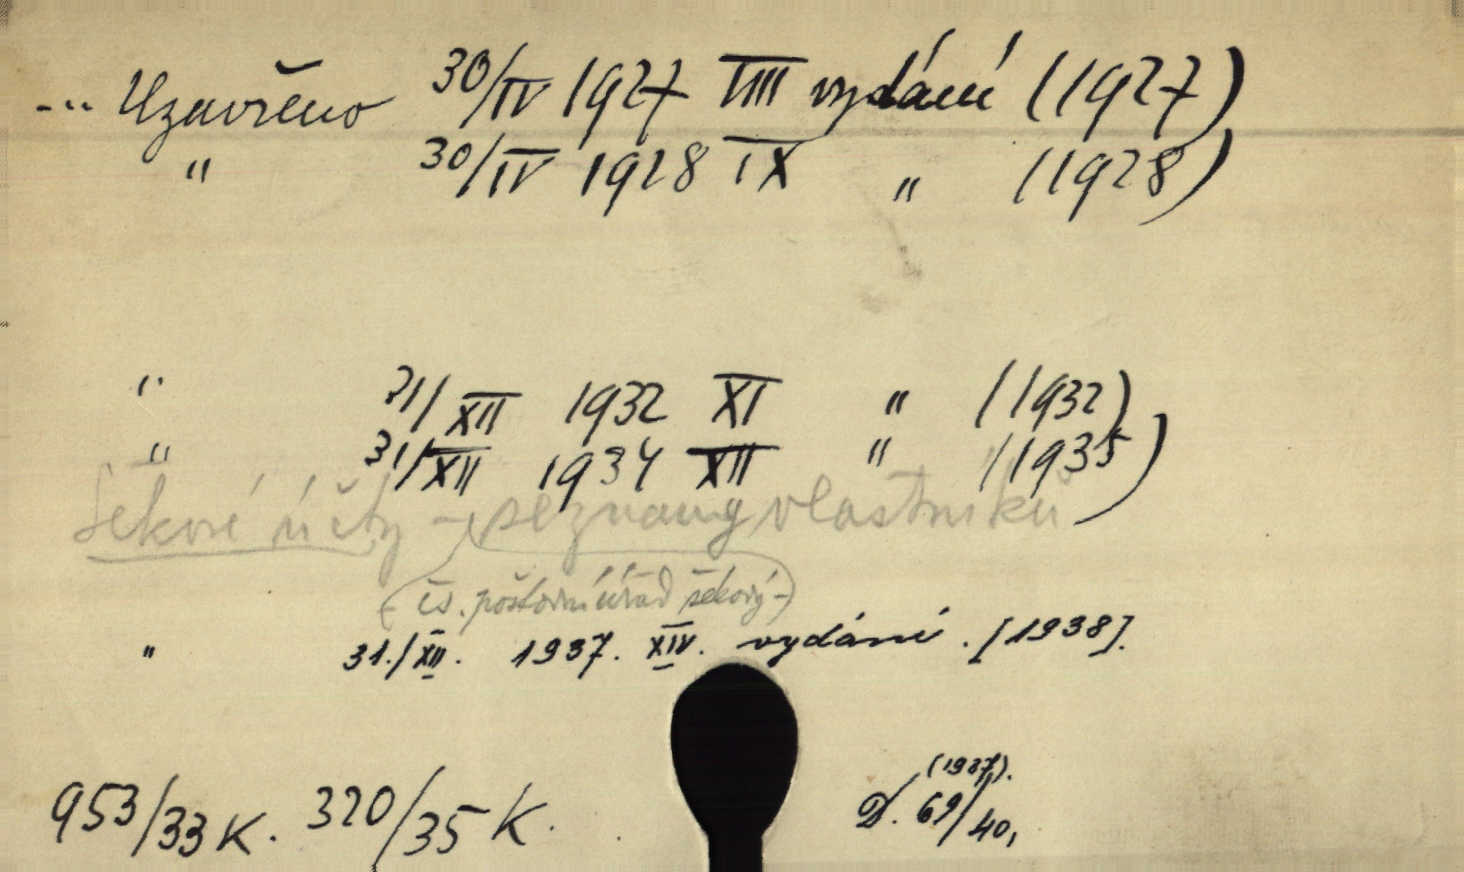 -"- Uzavřeno 30/IV 1927 VIII vydání (1927)
" 30/IV 1928 IX " (1928)
" 31/XII 1932 XI " (1932)
" 31/XII 1934 XII " (1935)
Šekové účty - seznamy vlastníků
(- čs. poštovní úřad šekový -)
" 31./XII. 1937. XIV. vydání. [1938].
953/33 K. 320/35 K.
(1937).
D. 69/40,